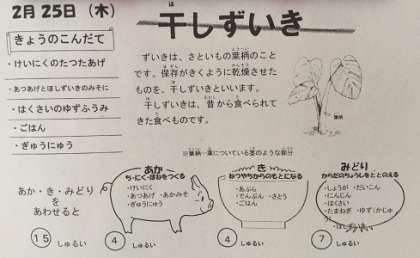 2月 25日 (木)
きょうのこんだて
・けいにくのたつたあげ
・あつあげとほしずいきのみそに
・はくさいのゆずふうみ
・ごはん
・ぎゅうにゅう
干しずいき
ずいきは、さといもの葉柄のこと
です。保存がきくように乾燥させた
ものを、干しずいきといいます。
干しずいきは、昔から食べられて
きた食べものです。
葉柄
※葉柄…葉についている茎のような部分
あか・き・みどり
を
あわせると
15 しゅるい
あか
ち・にく・ほねをつくる
・けいにく
・あつあげ ・あかみそ
・ぎゅうにゅう
4 しゅるい
き
ねつやちからのもとになる
・あぶら
・でんぷん ・さとう
・ごはん
4 しゅるい
みどり
からだのちょうしをととのえる
・しょうが ・だいこん
・にんじん
・はくさい
・たまねぎ ・ゆず(かじゅう)
・ほしずいき
7 しゅるい